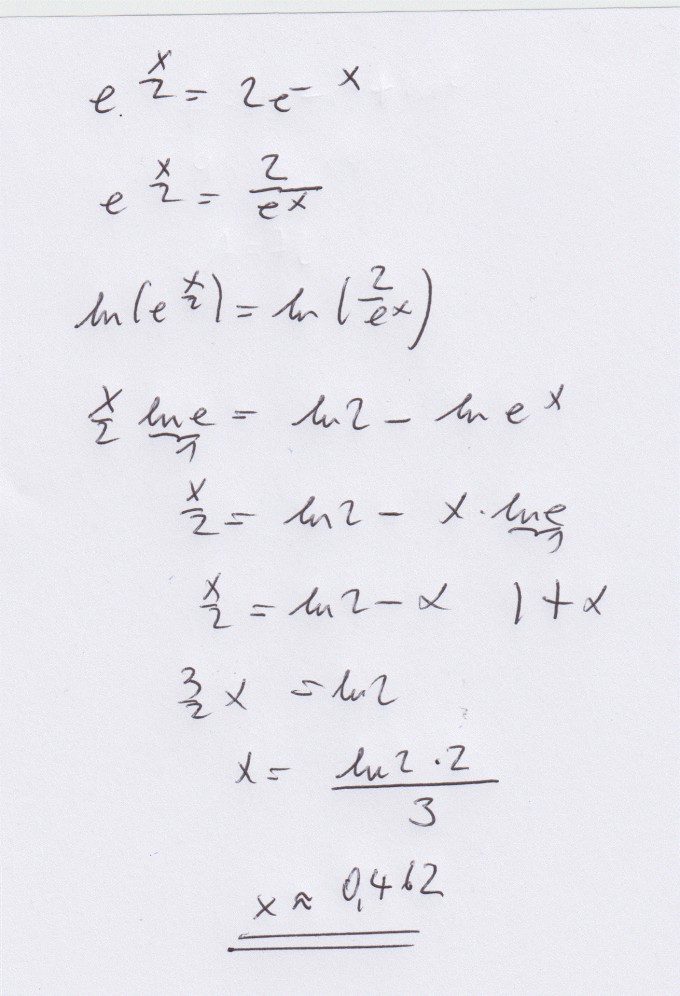 e^(x/2) = 2e^(-x)
e^(x/2) = 2/e^x
ln(e^(x/2)) = ln(2/e^x)
x/2 ln e = ln 2 - ln e^x
1
x/2 = ln 2 - x · ln e
1
x/2 = ln 2 - x | + x
3/2 x = ln 2
x = (ln 2 · 2)/3
x ≈ 0,462